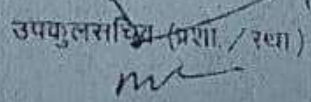 उपकुलसचिव (प्रशा. / स्था)